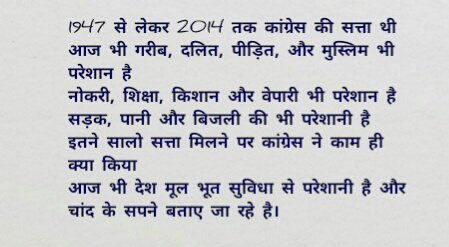 1947 से लेकर 2014 तक कांग्रेस की सत्ता थी
आज भी गरीब, दलित, पीड़ित, और मुस्लिम भी
परेशान है
नोकरी, शिक्षा, किशान और वेपारी भी परेशान है
सड़क, पानी और बिजली की भी परेशानी है
इतने सालो सत्ता मिलने पर कांग्रेस ने काम ही
क्या किया
आज भी देश मूल भूत सुविधा से परेशानी है और
चांद के सपने बताए जा रहे है।